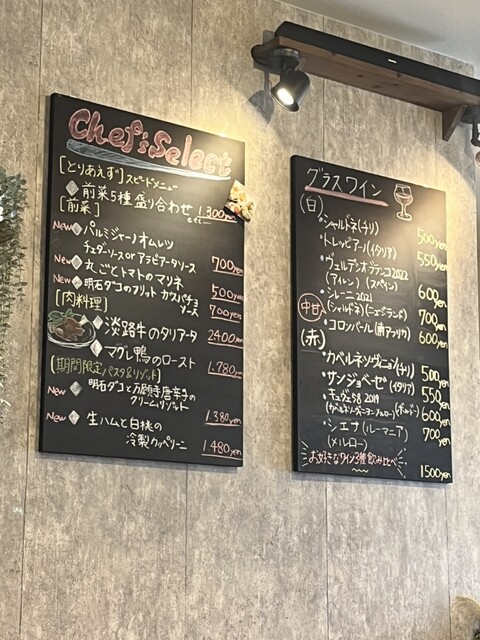 Chef's Select
[とりあえず] スピードメニュー
前菜5種盛り合わせ 1.300yen
[前菜]
New パルミジャーノオムレツ
チェダーソース or アラビアータソース 700yen
New 丸ごとトマトのマリネ 500yen
New 明石ダコのフリット ガスパチョソース 700yen
[肉料理]
淡路牛のタリアータ 2.400yen
マグレ鴨のロースト 1.780yen
[期間限定パスタ&リゾット]
New 明石ダコと万願寺唐辛子の
クリームリゾット 1.380yen
New 生ハムと白桃の
冷製カッペリーニ 1.480yen
グラスワイン
(白)
・シャルドネ(チリ) 500yen
・トレッビアーノ(イタリア) 550yen
・ヴェルデオ・ブランコ2022
(アイレン)(スペイン) 600yen
・シレーニ2021
(シャルドネ)(ニュージランド) 700yen
中甘 ・コロンバール(南アフリカ) 600yen
(赤)
・カベルネソヴィニョン(チリ) 500yen
・サンジョベーゼ(イタリア) 550yen
58 2019
600yen
・シエナ(ルーマニア)
(メルロー) 700yen
お好きなワイン3種飲み比べ
1500yen